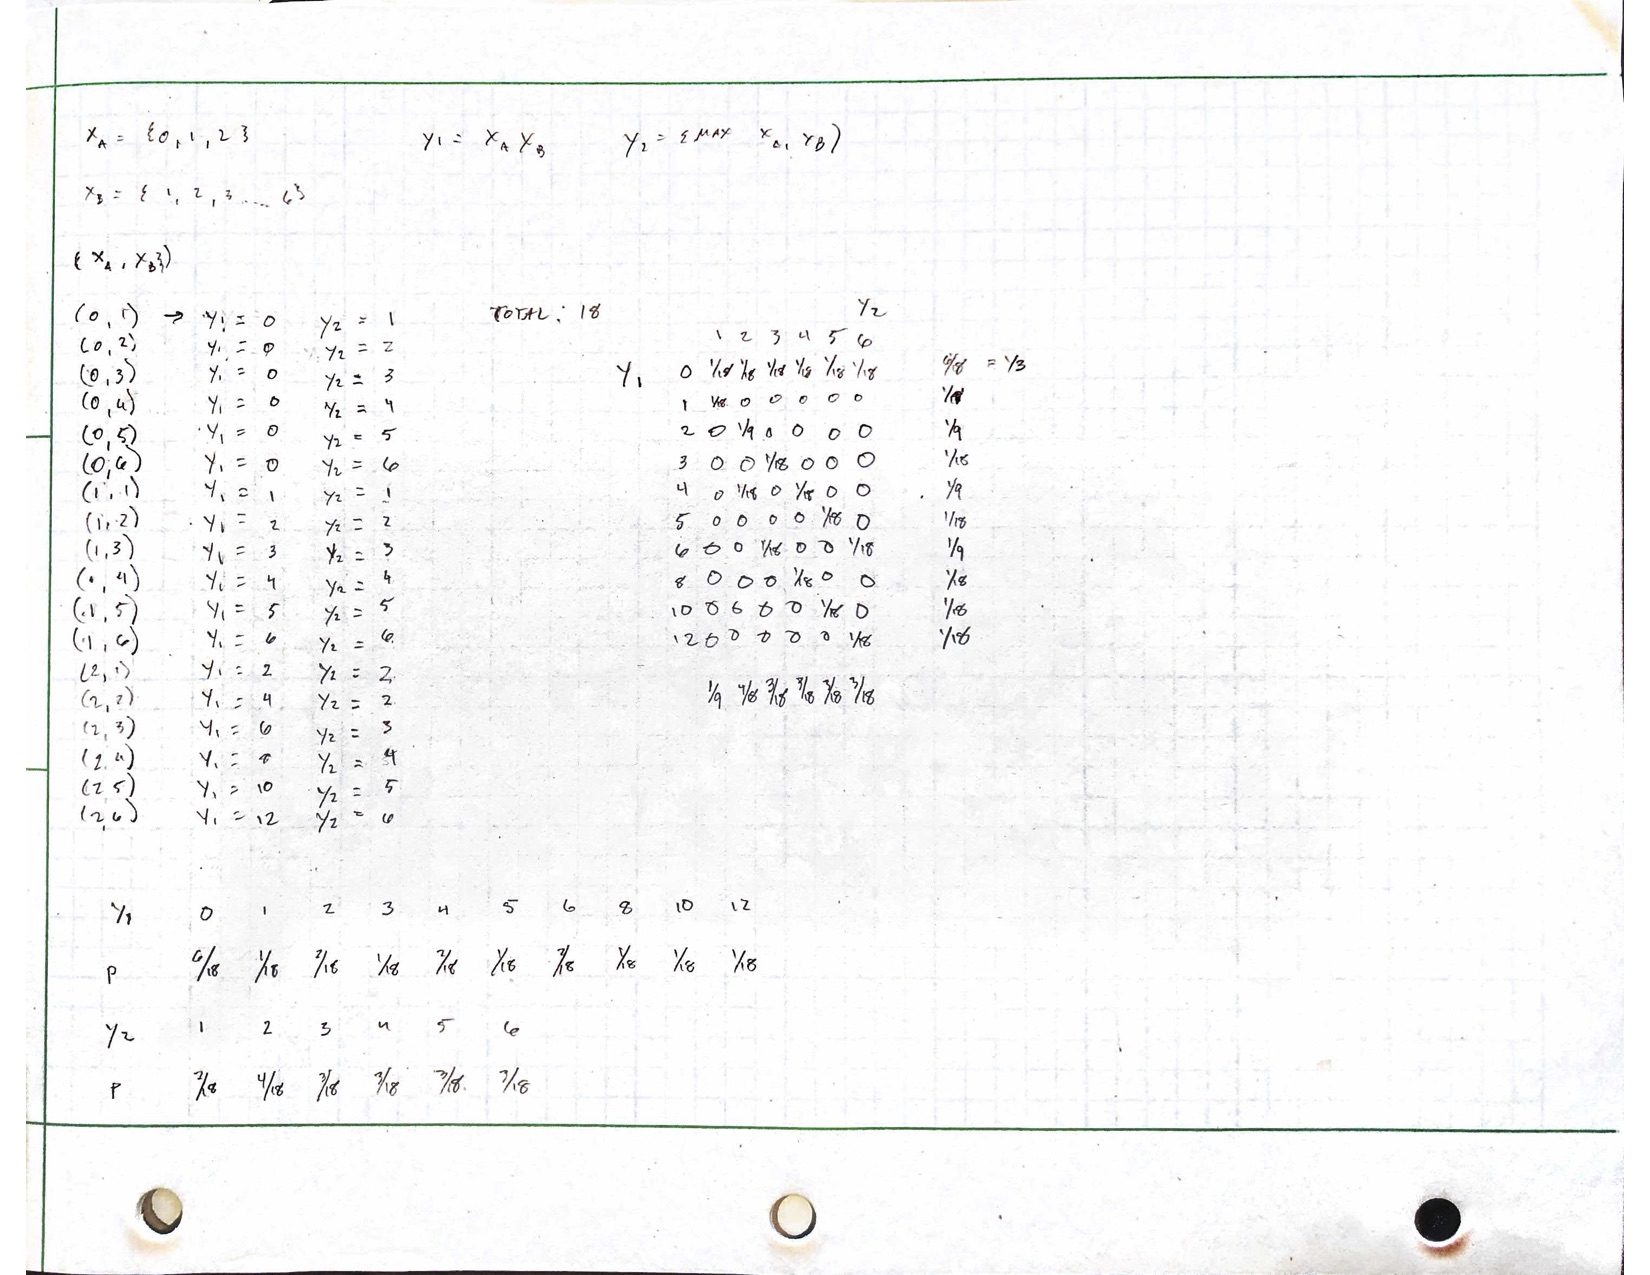 X_A = {0, 1, 2}   Y1 = X_A X_B   Y2 = {MAX X_A, X_B)
X_B = { 1, 2, 3 .... 6}
{X_A, X_B})
(0, 1) → Y1 = 0   Y2 = 1   TOTAL: 18
(0, 2)   Y1 = 0   Y2 = 2
(0, 3)   Y1 = 0   Y2 = 3
(0, 4)   Y1 = 0   Y2 = 4
(0, 5)   Y1 = 0   Y2 = 5
(0, 6)   Y1 = 0   Y2 = 6
(1, 1)   Y1 = 1   Y2 = 1
(1, 2)   Y1 = 2   Y2 = 2
(1, 3)   Y1 = 3   Y2 = 3
(1, 4)   Y1 = 4   Y2 = 4
(1, 5)   Y1 = 5   Y2 = 5
(1, 6)   Y1 = 6   Y2 = 6
(2, 1)   Y1 = 2   Y2 = 2
(2, 2)   Y1 = 4   Y2 = 2
(2, 3)   Y1 = 6   Y2 = 3
(2, 4)   Y1 = 8   Y2 = 4
(2 5)   Y1 = 10   Y2 = 5
(2, 6)   Y1 = 12   Y2 = 6
Y2
1 2 3 4 5 6
Y1   0 1/18 1/18 1/18 1/18 1/18 1/18   6/18 = 1/3
1 1/18 0 0 0 0 0   1/18
2 0 1/9 0 0 0 0   1/9
3 0 0 1/18 0 0 0   1/18
4 0 1/18 0 1/18 0 0   1/9
5 0 0 0 0 1/18 0   1/18
6 0 0 1/18 0 0 1/18   1/9
8 0 0 0 1/18 0 0   1/18
10 0 0 0 0 1/18 0   1/18
12 0 0 0 0 0 1/18   1/18
1/9 4/18 3/18 3/18 3/18 3/18
Y1   0 1 2 3 4 5 6 8 10 12
P   6/18 1/18 2/18 1/18 2/18 1/18 2/18 1/18 1/18 1/18
Y2   1 2 3 4 5 6
P   2/18 4/18 3/18 3/18 3/18 3/18